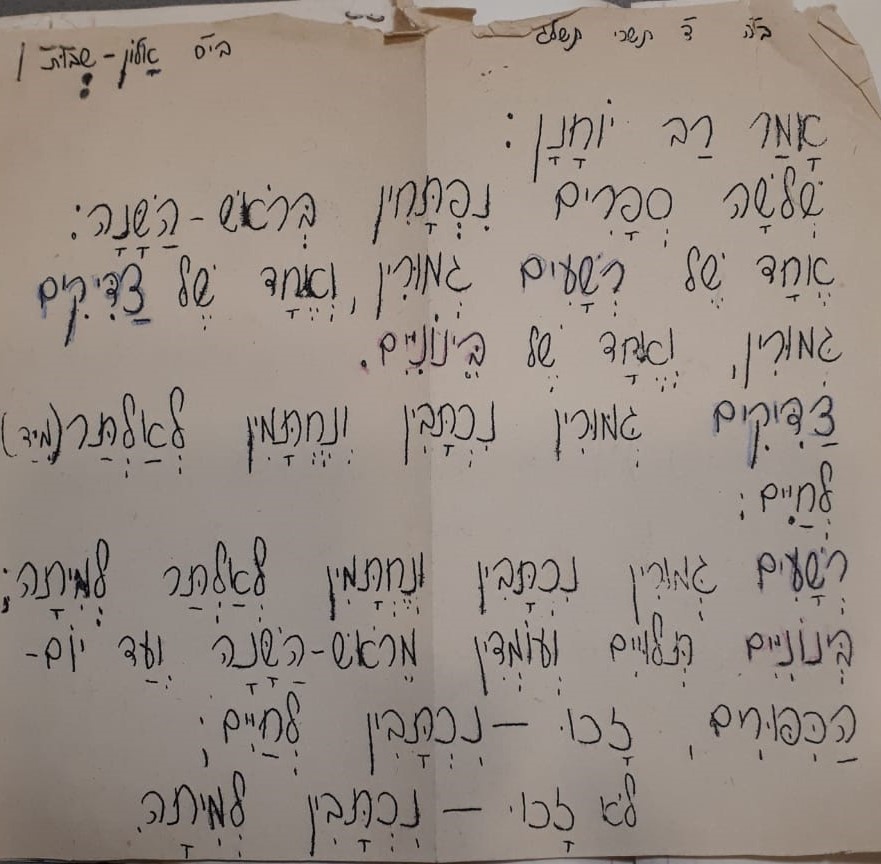 ב״ה ד׳ תשרי תשל״ג בי״ס אַלון - שְבות
אָמַר רַב יוֹחָנָן:
שְׁלֹשָׁה סְפָרִים נִפְתָּחִין בְּרֹאשׁ-הַשָּׁנָה:
אֶחָד שֶׁל רְשָׁעִים גְּמוּרִין, וְאֶחָד שֶׁל צַדִּיקִים
גְּמוּרִין, וְאֶחָד שֶׁל בֵּינוֹנִיִּים.
צַדִּיקִים גְּמוּרִין נִכְתָּבִין וְנֶחְתָּמִין לְאַלְתַּר (מִיָּד)
לְחַיִּים;
רְשָׁעִים גְּמוּרִין נִכְתָּבִין וְנֶחְתָּמִין לְאַלְתַּר לְמִיתָה;
בֵּינוֹנִיִּים תְּלוּיִים וְעוֹמְדִין מֵרֹאשׁ-הַשָּׁנָה וְעַד יוֹם-
הַכִּפּוּרִים, זָכוּ – נִכְתָּבִין לְחַיִּים;
לֹא זָכוּ – נִכְתָּבִין לְמִיתָה.